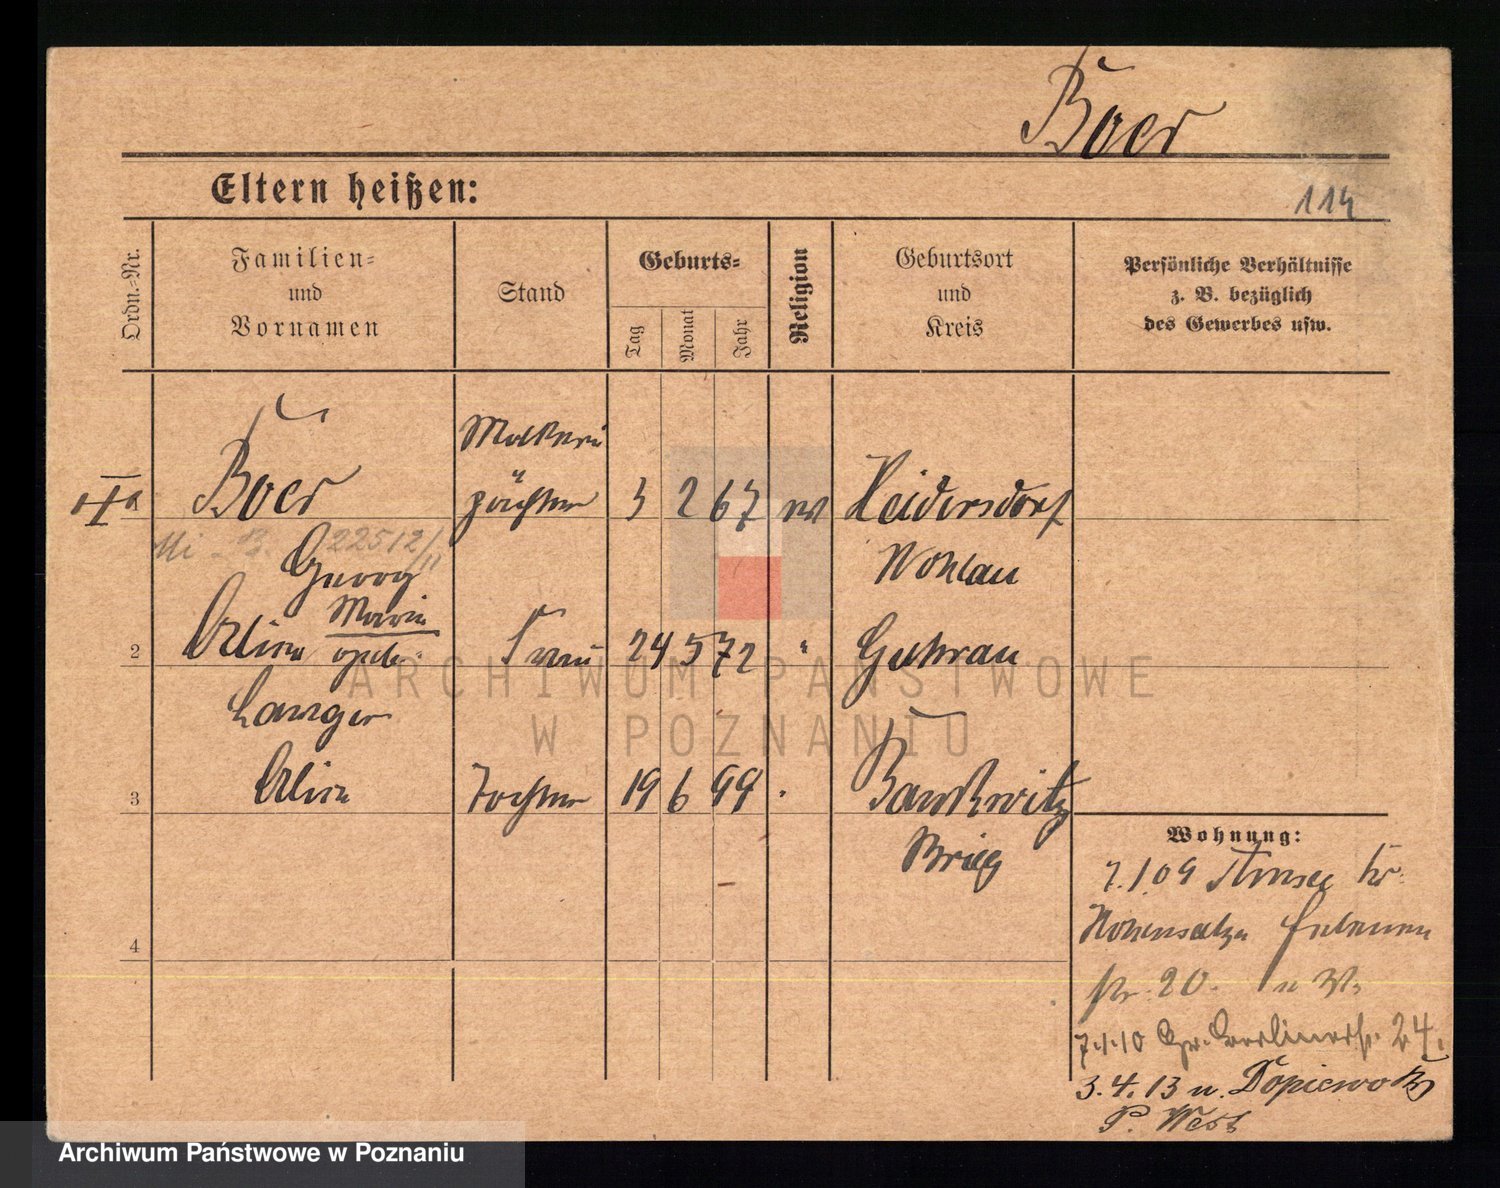 Boer
Eltern heißen:
114
Ordn.-Nr.
Familien-
und
Vornamen
Stand
Geburts-
Tag
Monat
Jahr
Religion
Geburtsort
und
Kreis
Persönliche Verhältnisse
z. B. bezüglich
des Gewerbes usw.
Boer
Molkerei
pächter
3 2 67
Heidersdorf
22512/11
Georg
Wohlau
2
Marie
geb.
Frau
24 5 72
"
Guhrau
Langer
3
Tochter
19 6 99
Bankwitz
Brieg
4
Wohnung:
7.1.09
Kr.
Hohensalza
str. 20.
7.1.10 Gr. Berlinerstr. 24.
3.4.13 n. Dopiewo Kr
P. West
ARCHIWUM PAŃSTWOWE
W POZNANIU
Archiwum Państwowe w Poznaniu